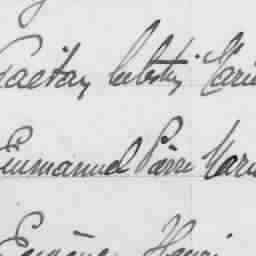 Gaëtan Célestin Marie
Emmanuel Pierre Marie
Eugène Henri